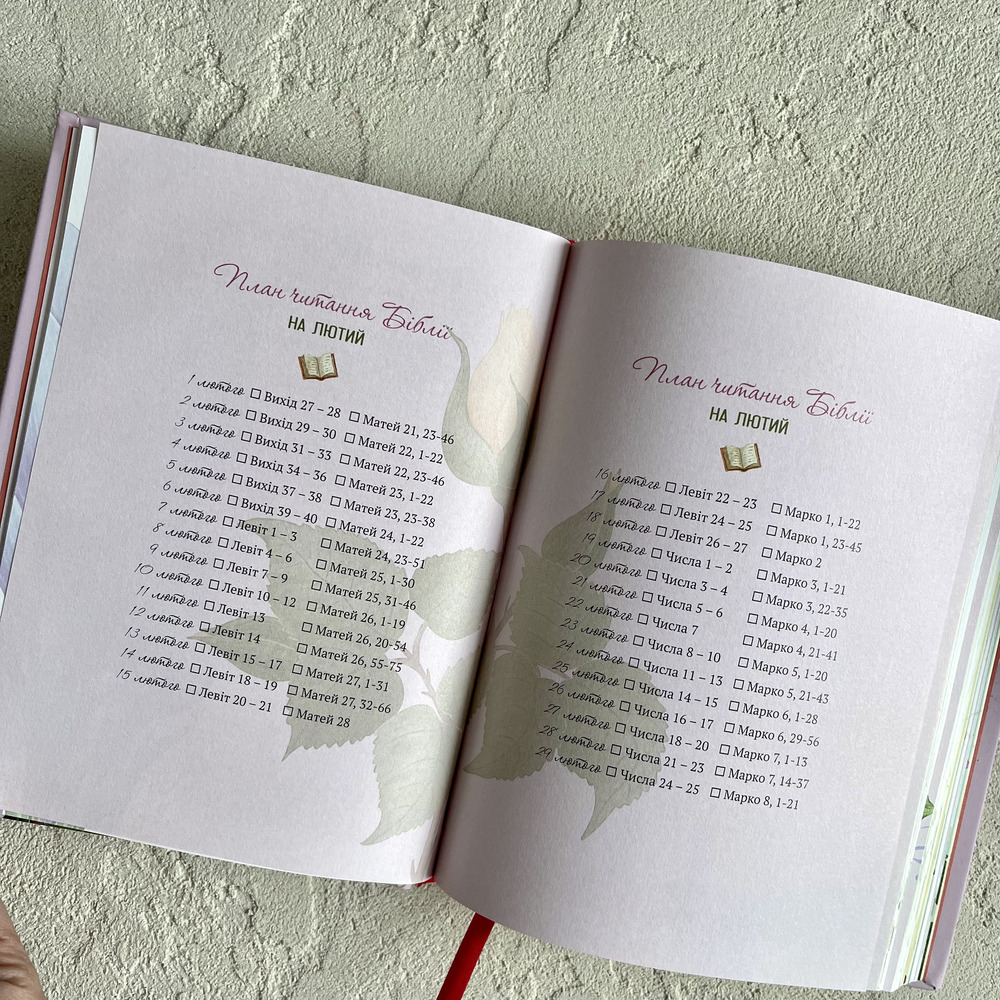 План читання Біблії
НА ЛЮТИЙ
1 лютого ☐ Вихід 27 – 28 ☐ Матей 21, 23-46
2 лютого ☐ Вихід 29 – 30 ☐ Матей 22, 1-22
3 лютого ☐ Вихід 31 – 33 ☐ Матей 22, 23-46
4 лютого ☐ Вихід 34 – 36 ☐ Матей 23, 1-22
5 лютого ☐ Вихід 37 – 38 ☐ Матей 23, 23-38
6 лютого ☐ Вихід 39 – 40 ☐ Матей 24, 1-22
7 лютого ☐ Левіт 1 – 3 ☐ Матей 24, 23-51
8 лютого ☐ Левіт 4 – 6 ☐ Матей 25, 1-30
9 лютого ☐ Левіт 7 – 9 ☐ Матей 25, 31-46
10 лютого ☐ Левіт 10 – 12 ☐ Матей 26, 1-19
11 лютого ☐ Левіт 13 ☐ Матей 26, 20-54
12 лютого ☐ Левіт 14 ☐ Матей 26, 55-75
13 лютого ☐ Левіт 15 – 17 ☐ Матей 27, 1-31
14 лютого ☐ Левіт 18 – 19 ☐ Матей 27, 32-66
15 лютого ☐ Левіт 20 – 21 ☐ Матей 28
План читання Біблії
НА ЛЮТИЙ
16 лютого ☐ Левіт 22 – 23 ☐ Марко 1, 1-22
17 лютого ☐ Левіт 24 – 25 ☐ Марко 1, 23-45
18 лютого ☐ Левіт 26 – 27 ☐ Марко 2
19 лютого ☐ Числа 1 – 2 ☐ Марко 3, 1-21
20 лютого ☐ Числа 3 – 4 ☐ Марко 3, 22-35
21 лютого ☐ Числа 5 – 6 ☐ Марко 4, 1-20
22 лютого ☐ Числа 7 ☐ Марко 4, 21-41
23 лютого ☐ Числа 8 – 10 ☐ Марко 5, 1-20
24 лютого ☐ Числа 11 – 13 ☐ Марко 5, 21-43
25 лютого ☐ Числа 14 – 15 ☐ Марко 6, 1-28
26 лютого ☐ Числа 16 – 17 ☐ Марко 6, 29-56
27 лютого ☐ Числа 18 – 20 ☐ Марко 7, 1-13
28 лютого ☐ Числа 21 – 23 ☐ Марко 7, 14-37
29 лютого ☐ Числа 24 – 25 ☐ Марко 8, 1-21